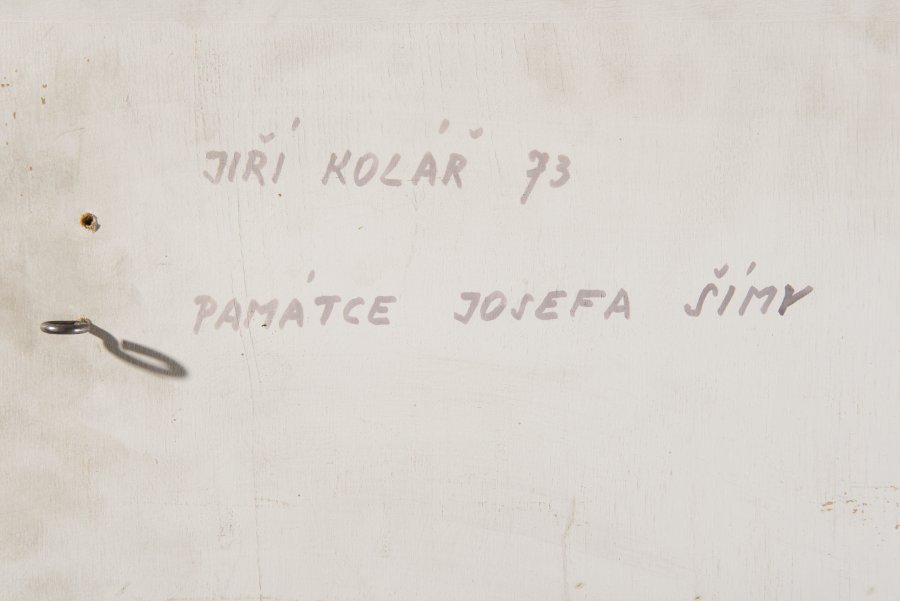 JIŘÍ KOLÁŘ 73
PAMÁTCE JOSEFA ŠÍMY